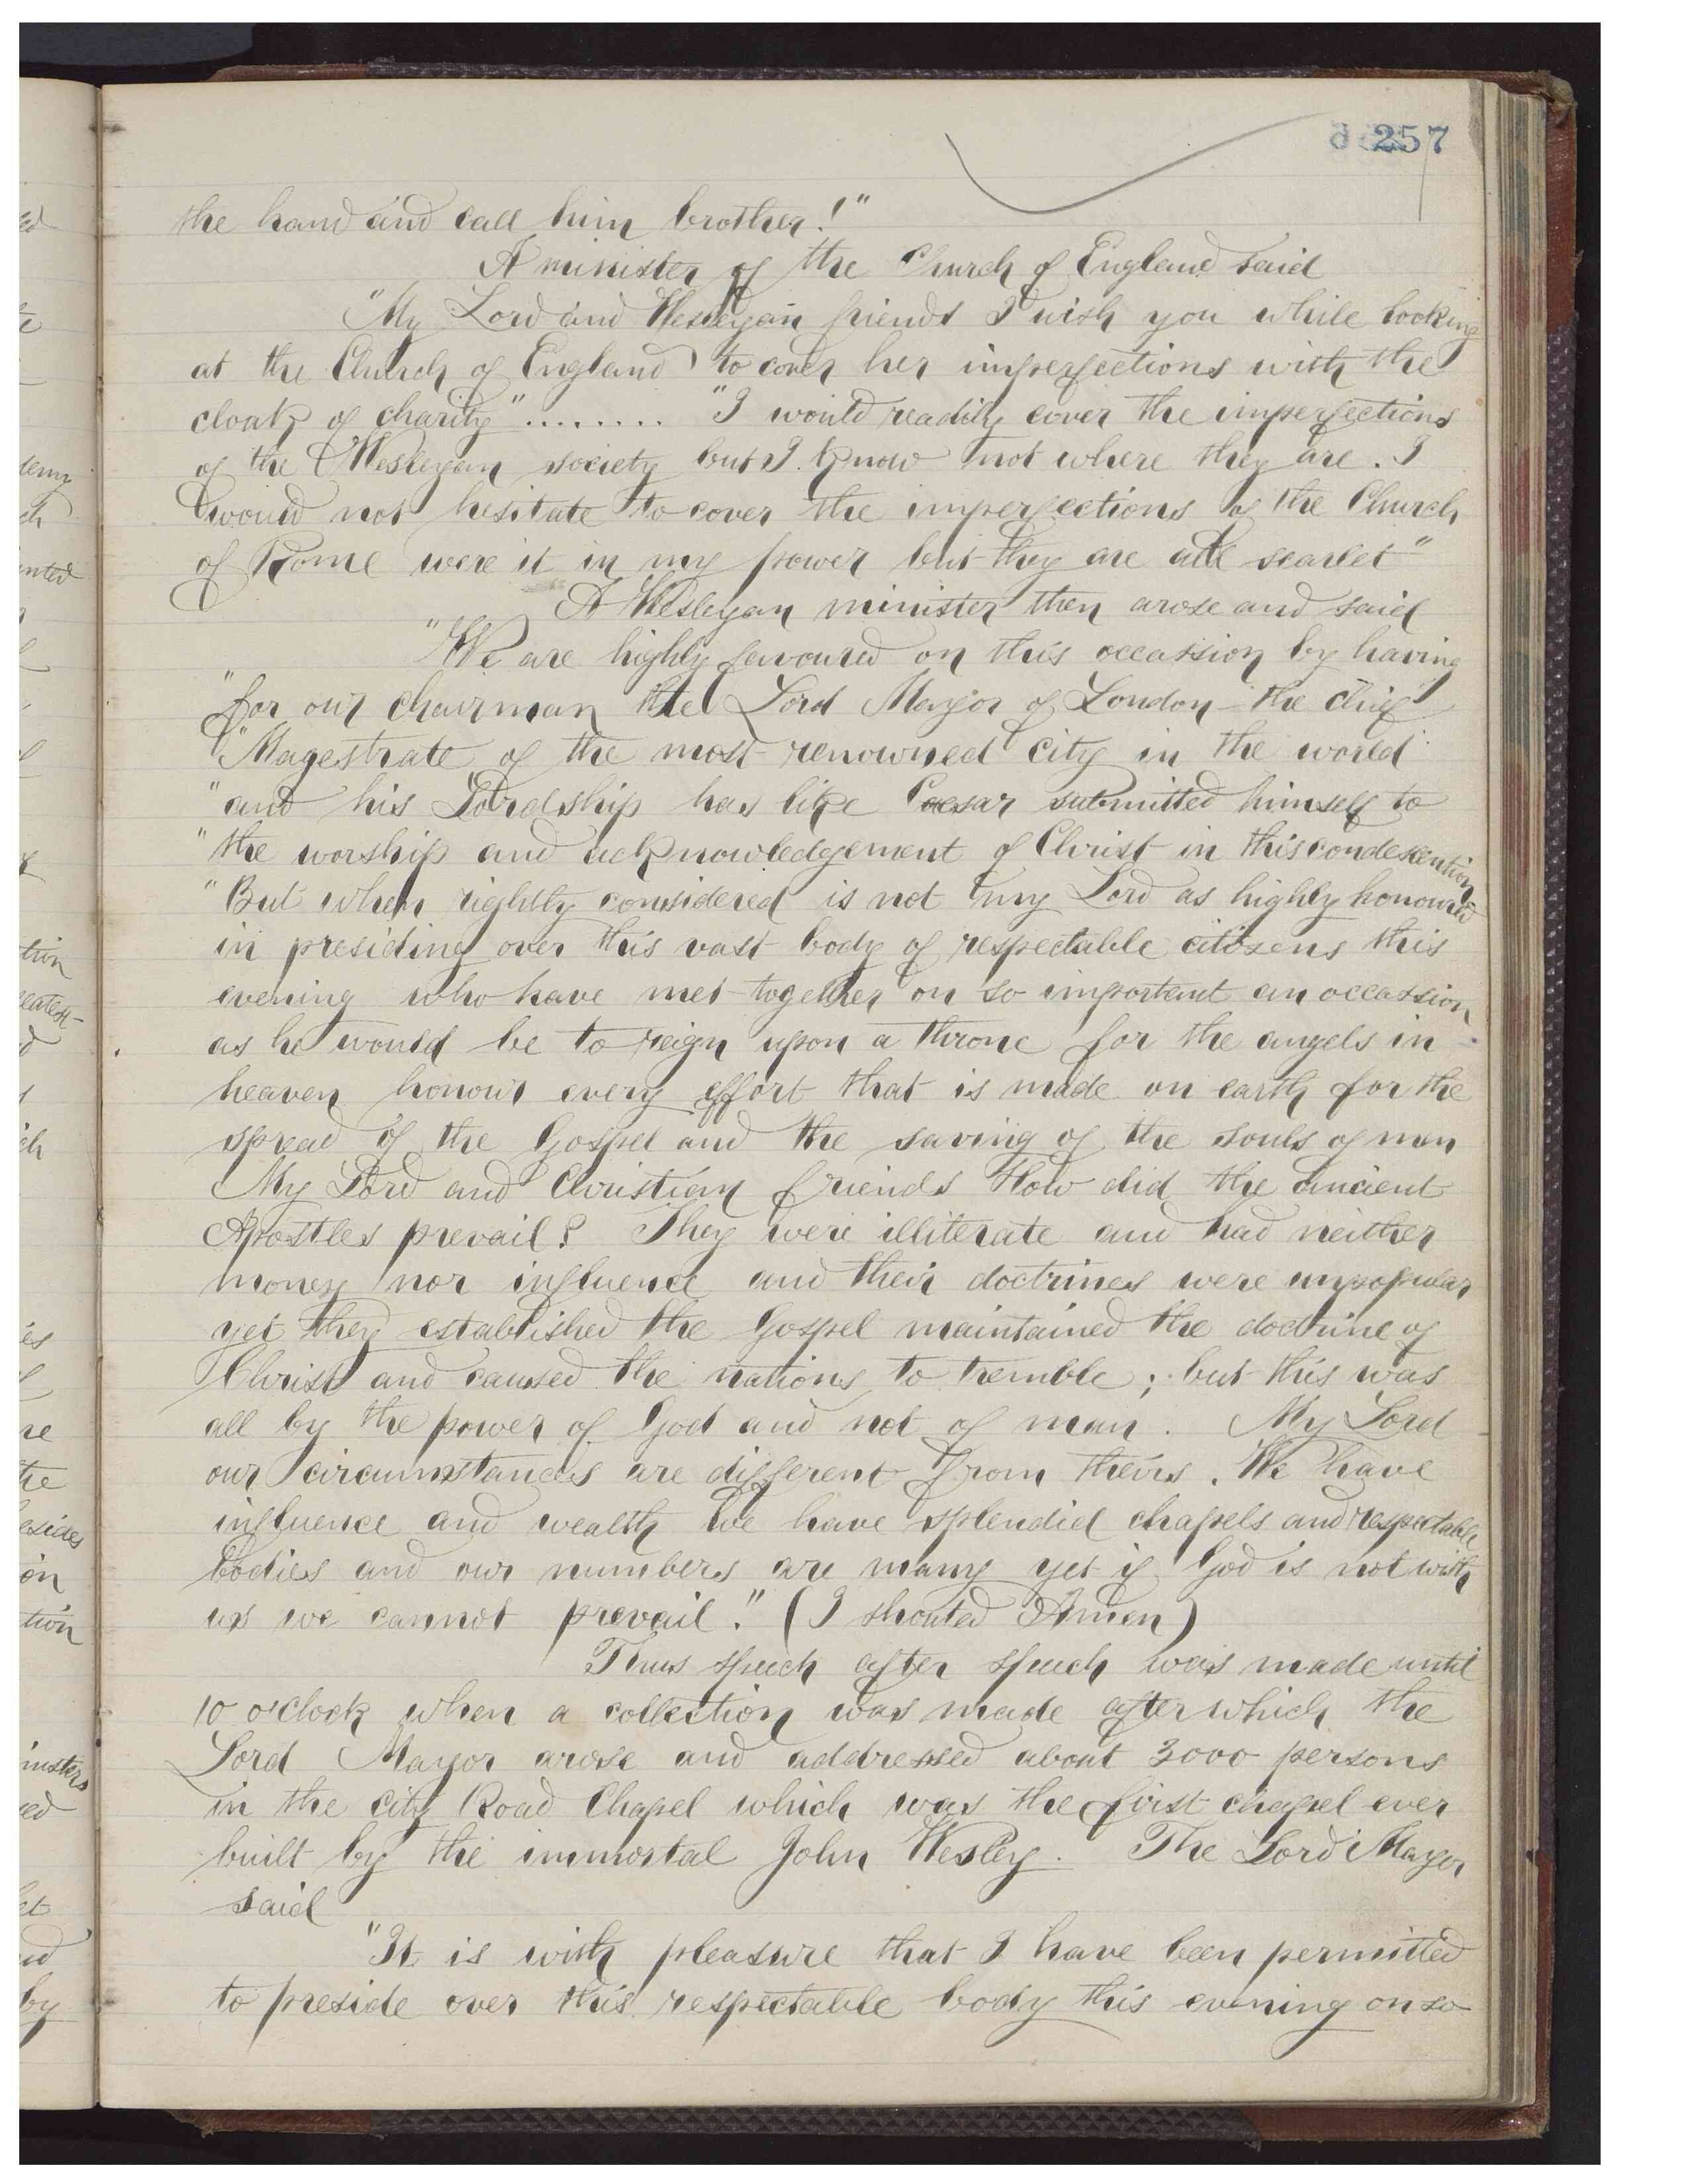 257
the hand and call him brother!"
A minister of the Church of England said
"My Lord and Wesleyan friends I wish you while looking
at the Church of England to cover her imperfections with the
cloak of charity" ........ "I would readily cover the imperfections
of the Wesleyan society but I know not where they are. I
would not hesitate to cover the imperfections of the Church
of Rome were it in my power but they are all scarlet"
A Wesleyan minister then arose and said
"We are highly favoured on this occassion by having
"for our chairman the Lord Mayor of London - the chief
"Magestrate of the most renowned city in the world
"and his Lordship has like Caesar submitted himself to
"the worship and acknowledgement of Christ in this condesention
"But when rightly considered is not my Lord as highly honoured
in presiding over this vast body of respectable citizens this
evening who have met together on so important an occassion
as he would be to reign upon a throne for the angels in
heaven honour every effort that is made on earth for the
spread of the Gospel and the saving of the souls of men
My Lord and Christian friends How did the ancient
Apostles prevail? They were illiterate and had neither
money nor influence and their doctrines were unpopular
yet they established the Gospel maintained the doctrine of
Christ and caused the nations to tremble; but this was
all by the power of God and not of man. My Lord
our circumstances are different from theirs. We have
influence and wealth we have splendid chapels and respectable
bodies and our numbers are many yet if God is not with
us we cannot prevail." (I shouted Amen)
Thus speech after speech was made until
10 o'clock when a collection was made after which the
Lord Mayor arose and addressed about 3000 persons
in the city Road Chapel which was the first chapel ever
built by the immortal John Wesley. The Lord Mayor
said
"It is with pleasure that I have been permitted
to preside over this respectable body this evening on so